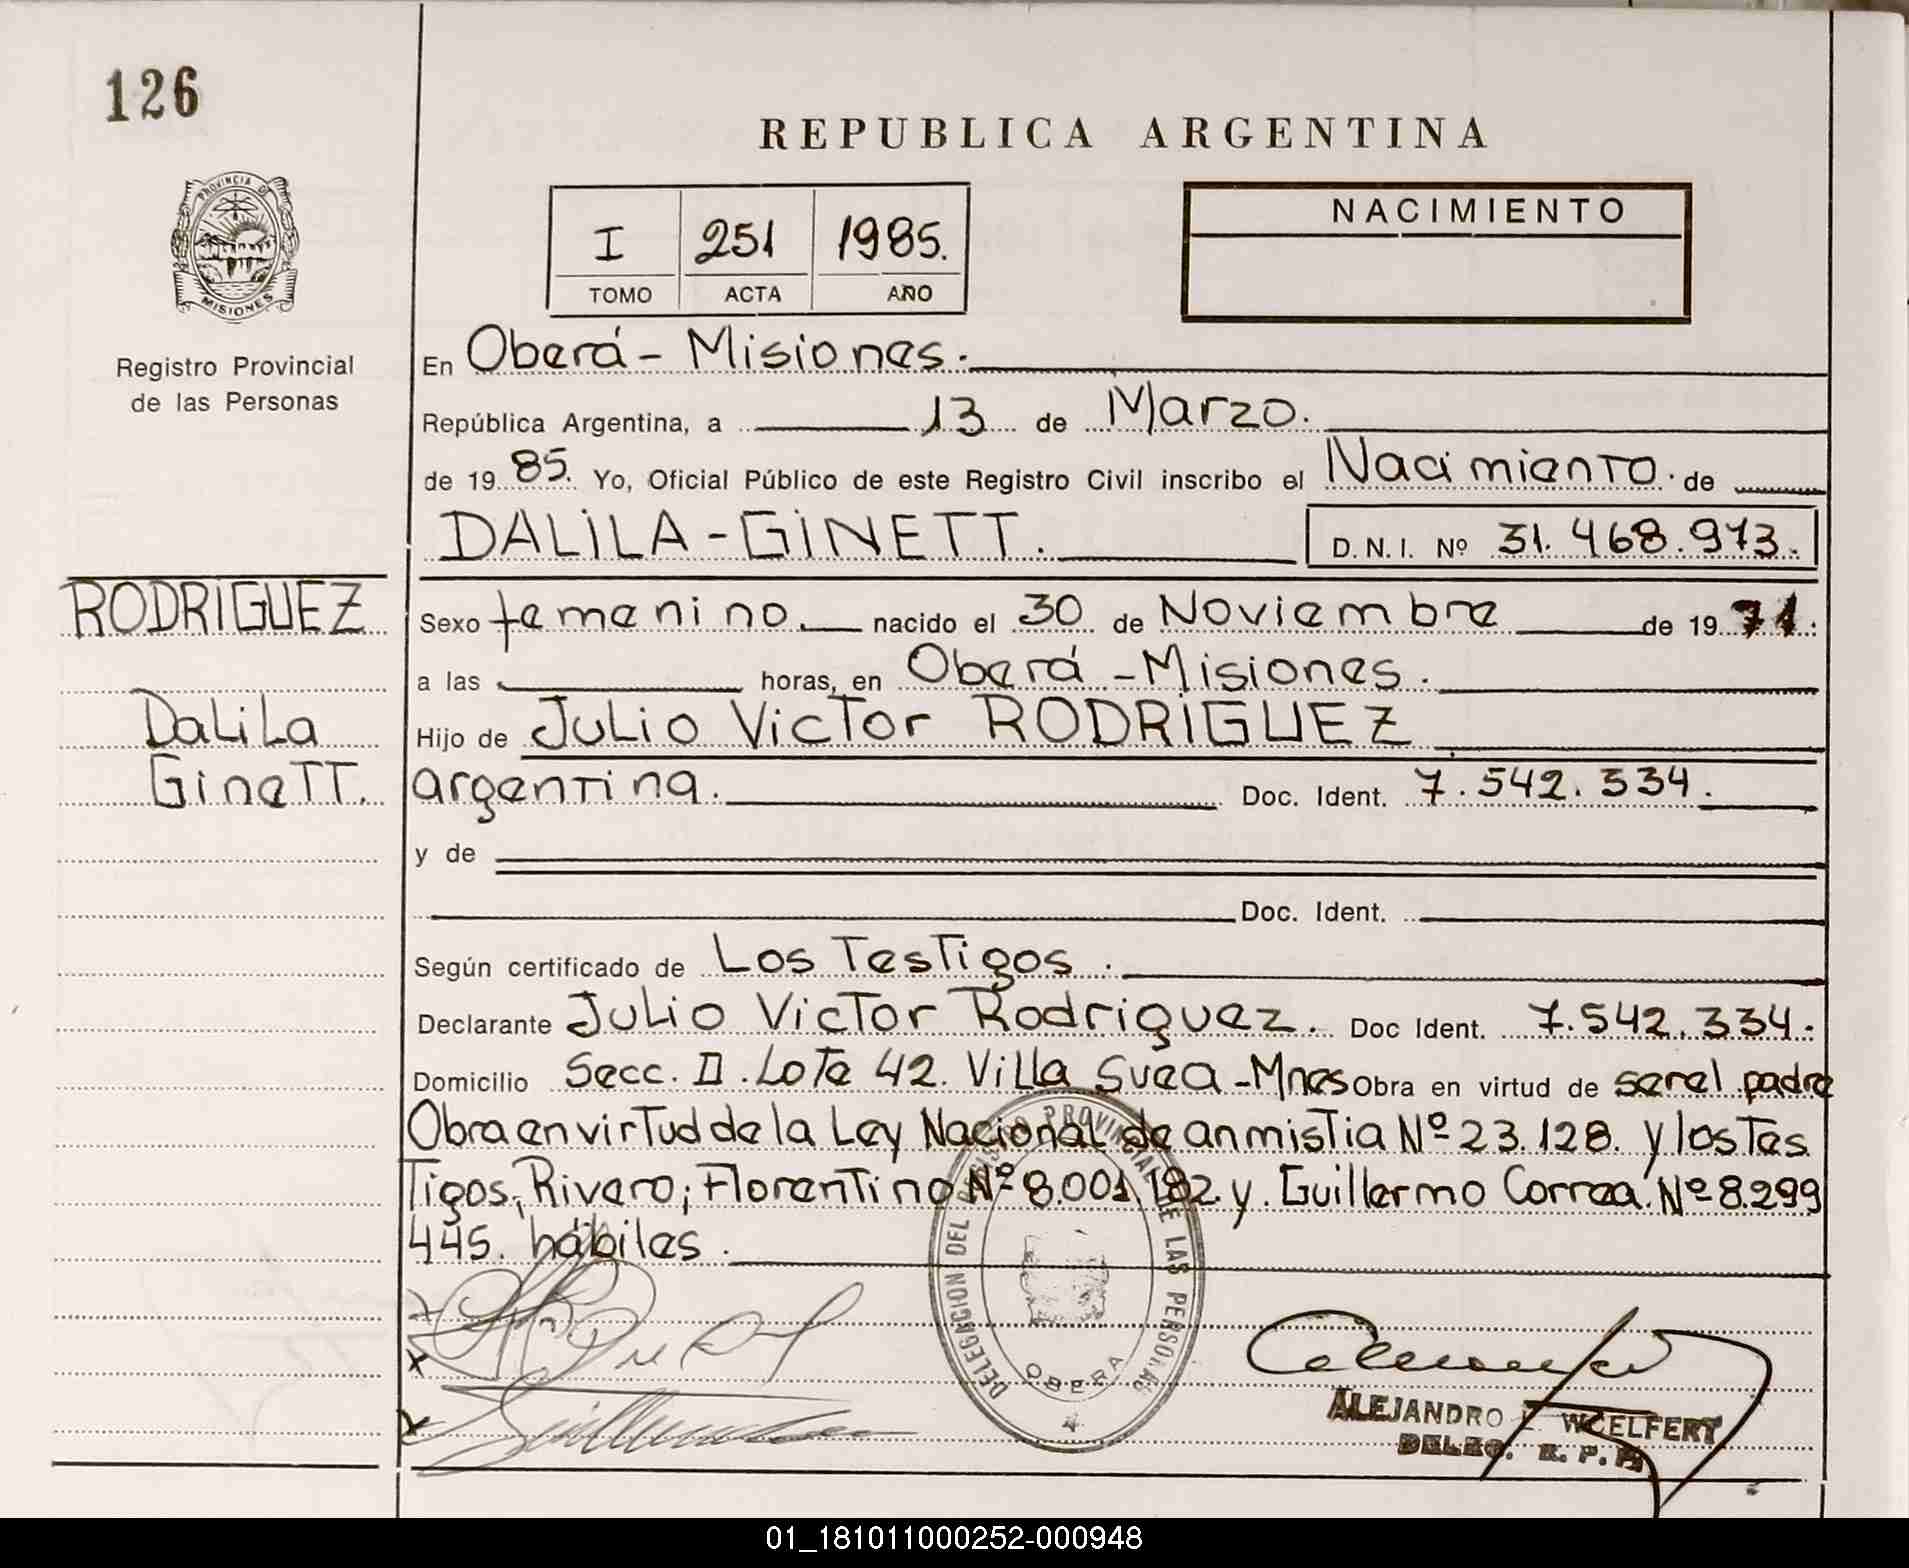 126
REPUBLICA ARGENTINA
PROVINCIA DE
MISIONES
I 251 1985.
TOMO ACTA AÑO
NACIMIENTO
Registro Provincial
de las Personas
En Oberá - Misiones.
República Argentina, a 13 de Marzo.
de 1985. Yo, Oficial Público de este Registro Civil inscribo el Nacimiento. de
DALILA - GINETT. D.N.I. Nº 31.468.973.
RODRIGUEZ
Dalila
Ginett.
Sexo femenino. nacido el 30 de Noviembre de 1971.
a las horas, en Oberá - Misiones.
Hijo de Julio Victor RODRIGUEZ
argentina. Doc. Ident. 7.542.334.
y de
Doc. Ident.
Según certificado de Los Testigos.
Declarante Julio Victor Rodriguez. Doc Ident. 7.542.334.
Domicilio Secc. II. Lote 42. Villa Svea - Mnes Obra en virtud de ser el padre
Obra en virtud de la Ley Nacional de anmistia Nº 23.128. y los Tes
Tigos, Rivero; Florentino Nº 8.001.182. y. Guillermo Correa. Nº 8.299
445. hábiles.
DELEGACION DEL REGISTRO PROVINCIAL DE LAS PERSONAS
OBERA
4
ALEJANDRO WOELFERT
DELEG. R. P. P.
01_181011000252-000948